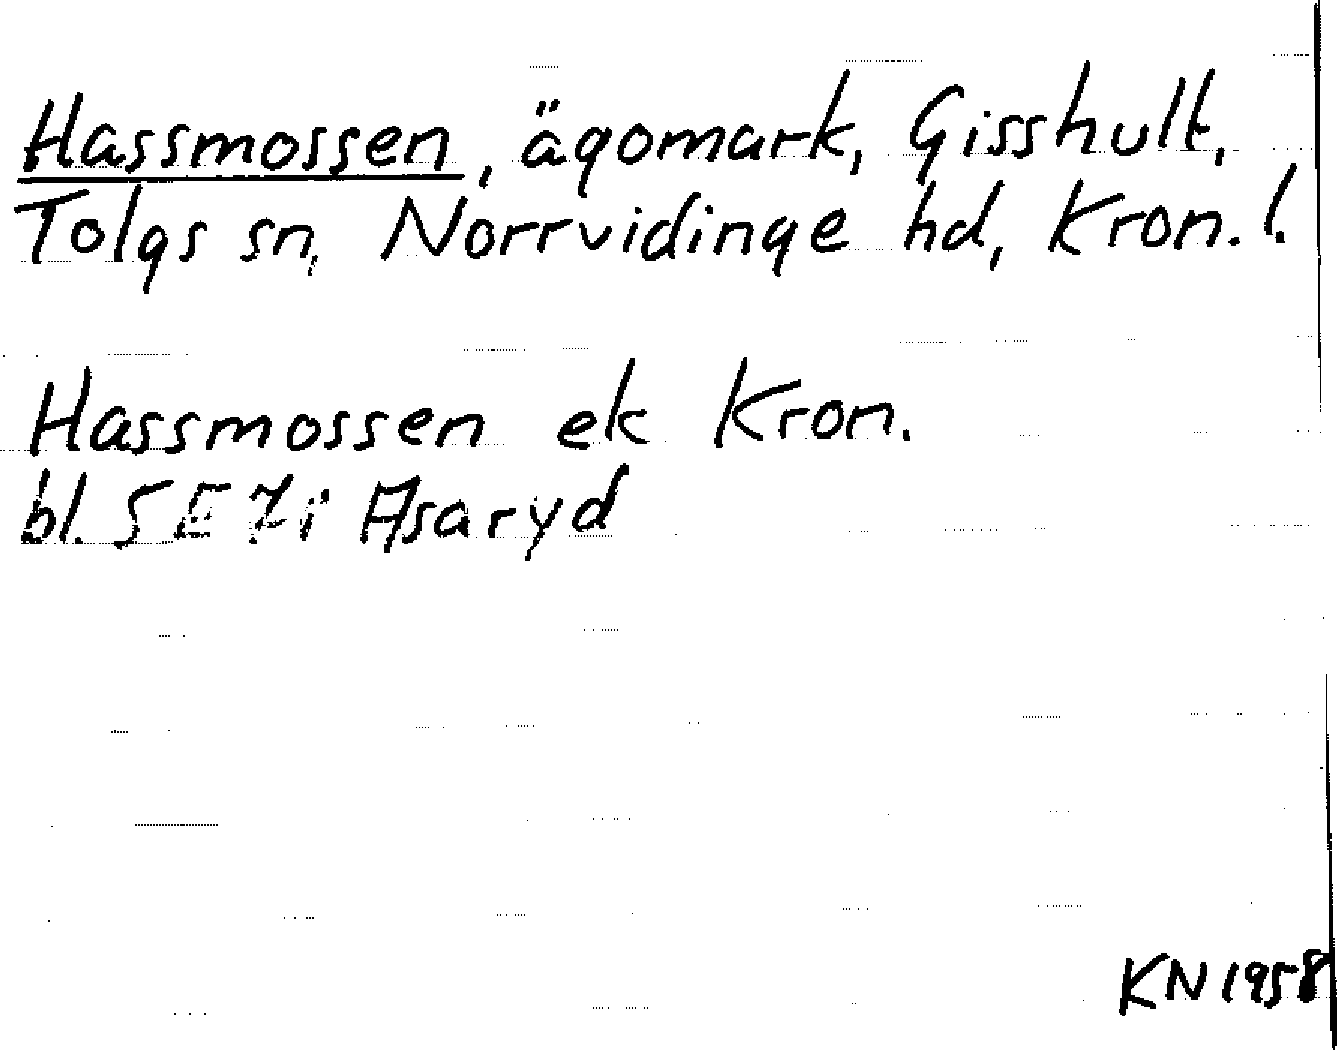 Hassmossen, ägomark, Gisshult,
Tolgs sn, Norrvidinge hd, Kron. l.
Hassmossen ek Kron.
bl. 5 E 7 i Asaryd
KN 1958